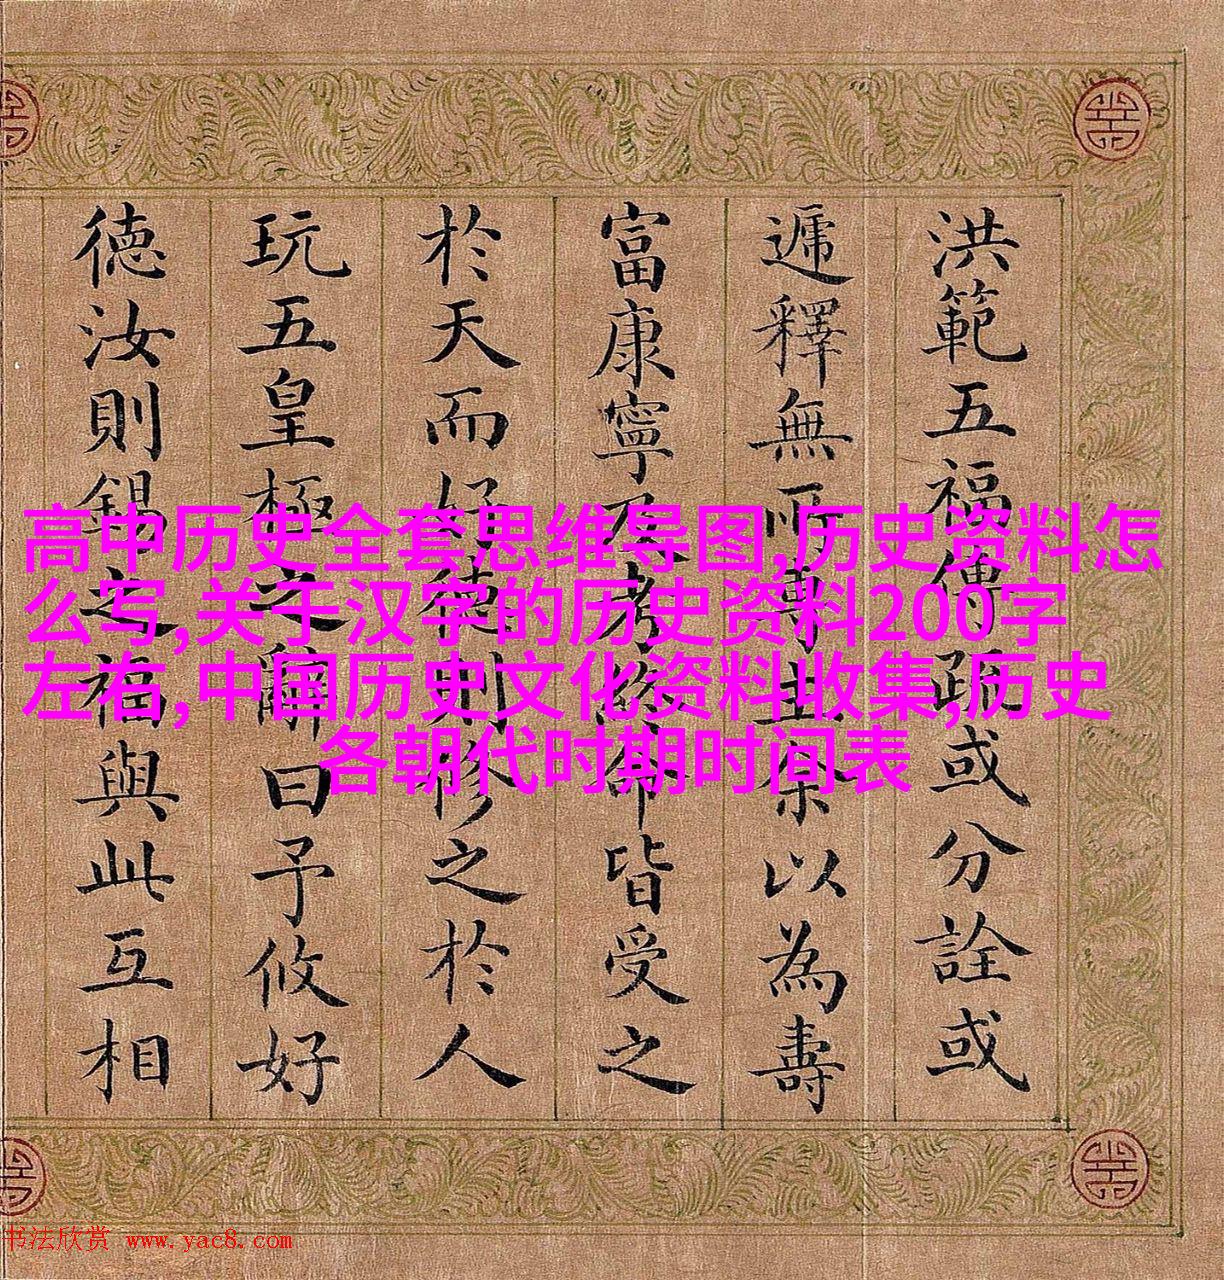 洪範五福傳疏或分詮或
遞釋無所專余以為壽
富康寧乃考終命皆受之
於天而好德則修之於人
玩五皇極之辭曰予攸好
德汝則錫之福與此互相
高中历史全套思维导图,历史资料怎
么写,关于汉字的历史资料200字
左右,中国历史文化资料收集,历史
各朝代时期时间表
书法欣赏 www.yac8.com